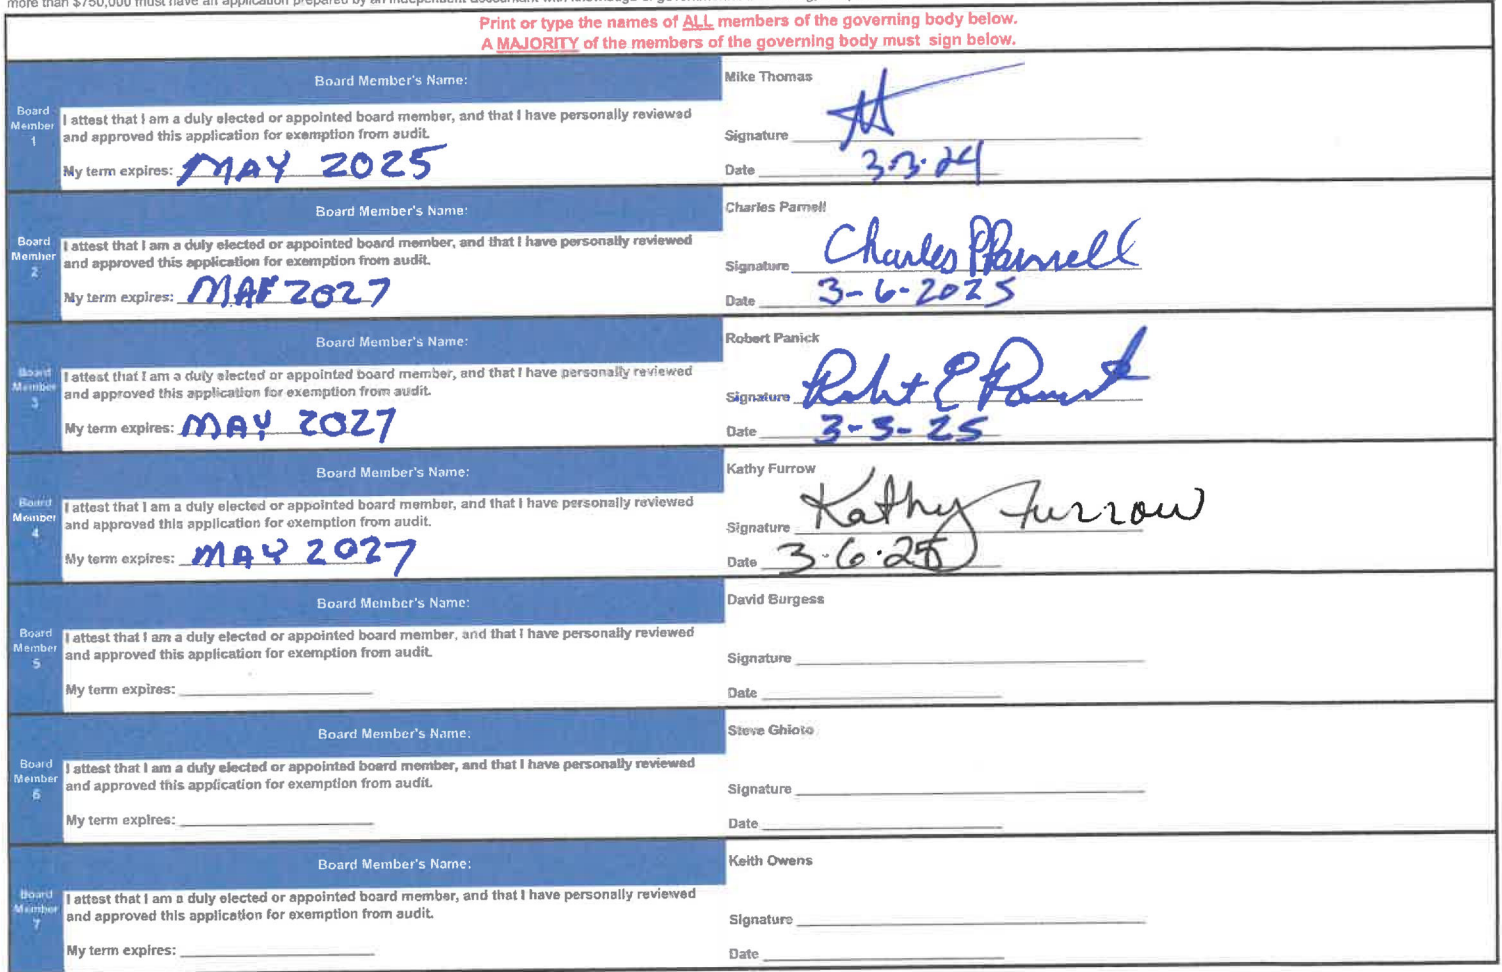 more than $750,000 must have an application prepared by an independent accountant with knowledge of
Print or type the names of ALL members of the governing body below.
A MAJORITY of the members of the governing body must sign below.
Board Member 1
Board Member's Name:
Mike Thomas
I attest that I am a duly elected or appointed board member, and that I have personally reviewed
and approved this application for exemption from audit.
My term expires: MAY 2025
Signature
Date 3.3.24
Board Member 2
Board Member's Name:
Charles Parnell
I attest that I am a duly elected or appointed board member, and that I have personally reviewed
and approved this application for exemption from audit.
My term expires: MAY 2027
Signature Charles P Parnell
Date 3-6-2025
Board Member 3
Board Member's Name:
Robert Panick
I attest that I am a duly elected or appointed board member, and that I have personally reviewed
and approved this application for exemption from audit.
My term expires: MAY 2027
Signature Robert E Panick
Date 3-3-25
Board Member 4
Board Member's Name:
Kathy Furrow
I attest that I am a duly elected or appointed board member, and that I have personally reviewed
and approved this application for exemption from audit.
My term expires: MAY 2027
Signature Kathy Furrow
Date 3.6.25
Board Member 5
Board Member's Name:
David Burgess
I attest that I am a duly elected or appointed board member, and that I have personally reviewed
and approved this application for exemption from audit.
My term expires:
Signature
Date
Board Member 6
Board Member's Name:
Steve Ghioto
I attest that I am a duly elected or appointed board member, and that I have personally reviewed
and approved this application for exemption from audit.
My term expires:
Signature
Date
Board Member 7
Board Member's Name:
Keith Owens
I attest that I am a duly elected or appointed board member, and that I have personally reviewed
and approved this application for exemption from audit.
My term expires:
Signature
Date